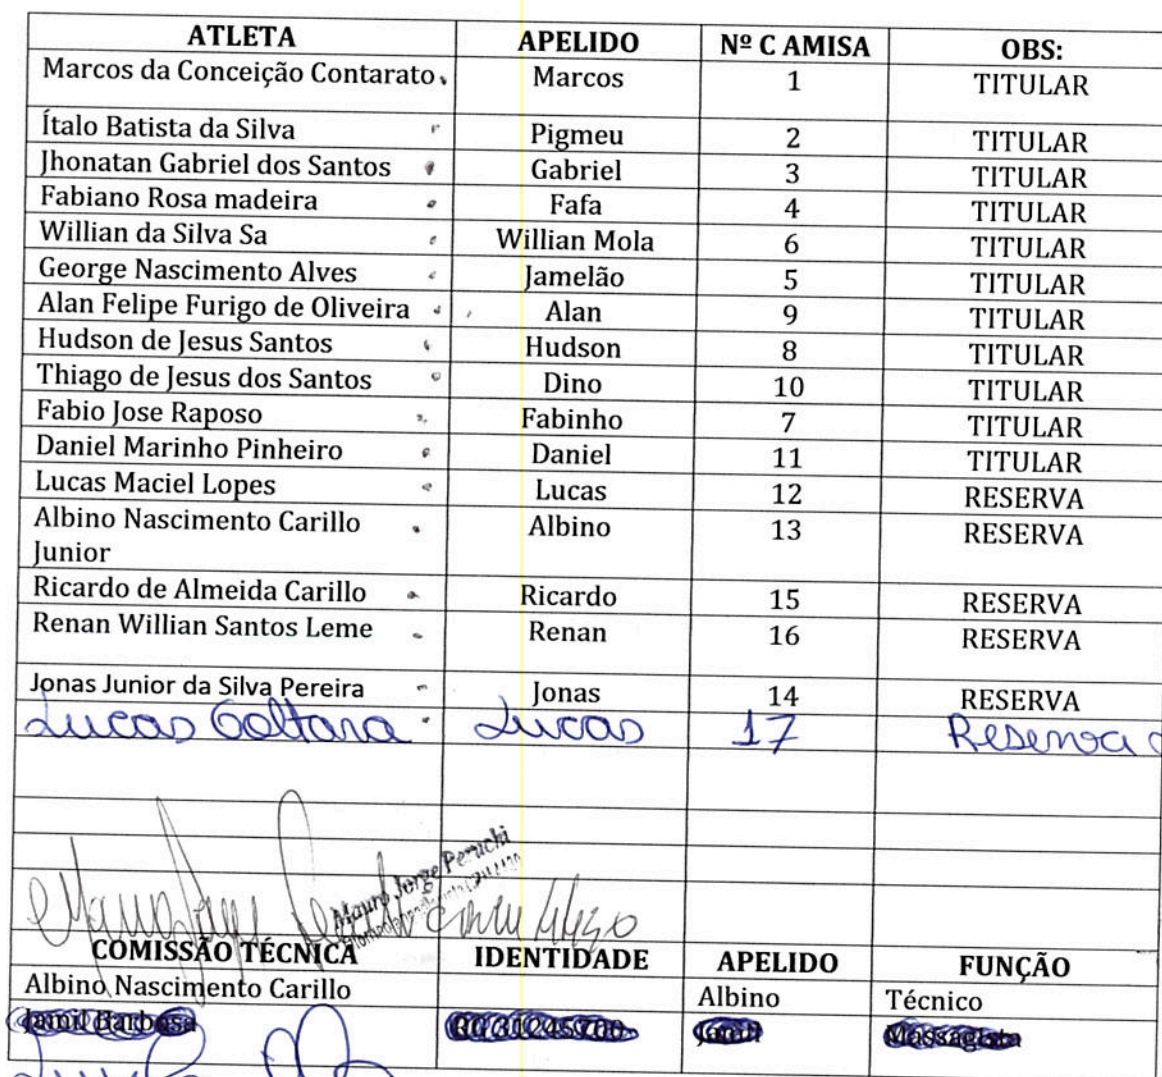 ATLETA APELIDO Nº C AMISA OBS:
Marcos da Conceição Contarato Marcos 1 TITULAR
Ítalo Batista da Silva Pigmeu 2 TITULAR
Jhonatan Gabriel dos Santos Gabriel 3 TITULAR
Fabiano Rosa madeira Fafa 4 TITULAR
Willian da Silva Sa Willian Mola 6 TITULAR
George Nascimento Alves Jamelão 5 TITULAR
Alan Felipe Furigo de Oliveira Alan 9 TITULAR
Hudson de Jesus Santos Hudson 8 TITULAR
Thiago de Jesus dos Santos Dino 10 TITULAR
Fabio Jose Raposo Fabinho 7 TITULAR
Daniel Marinho Pinheiro Daniel 11 TITULAR
Lucas Maciel Lopes Lucas 12 RESERVA
Albino Nascimento Carillo Albino 13 RESERVA
Junior
Ricardo de Almeida Carillo Ricardo 15 RESERVA
Renan Willian Santos Leme Renan 16 RESERVA
Jonas Junior da Silva Pereira Jonas 14 RESERVA
Lucas Goltara Lucas 17 Reserva
Mauro Jorge Peruchi
COMISSÃO TÉCNICA IDENTIDADE APELIDO FUNÇÃO
Albino Nascimento Carillo Albino Técnico
Jamil Barbosa Jamil Massagista